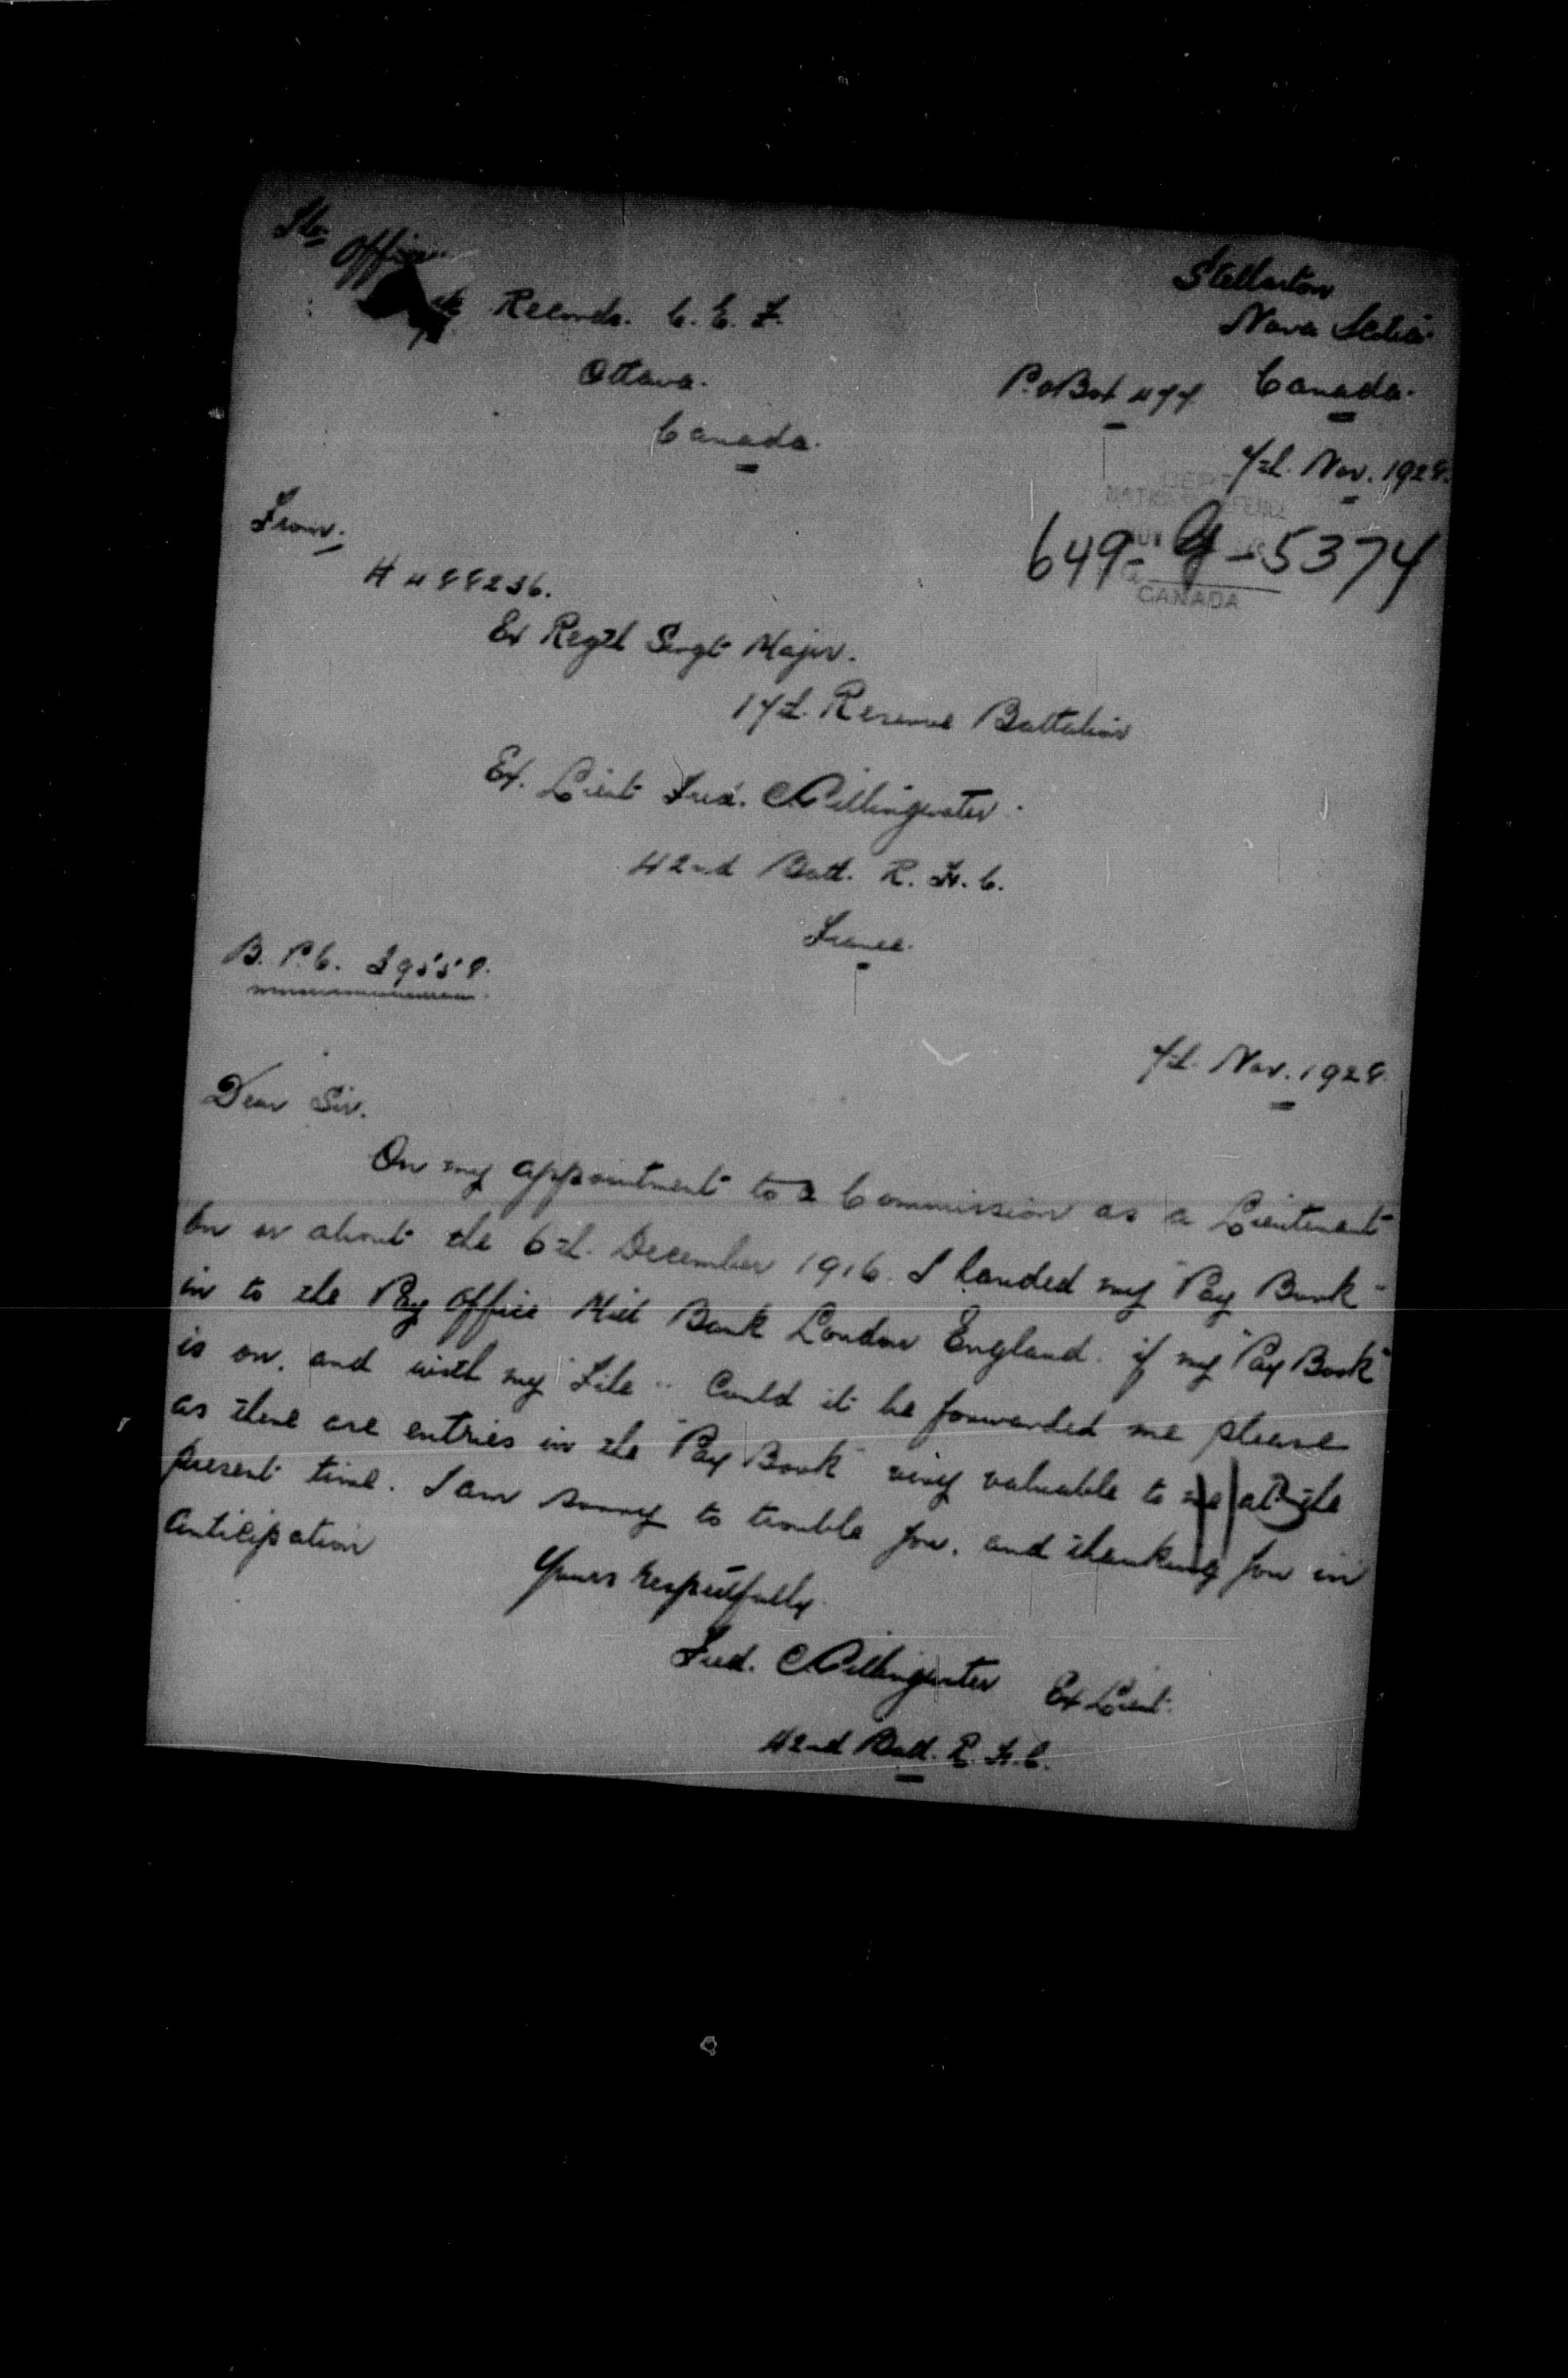 The
Officer
Records. C. E. F.
Ottawa.
Canada.
Stellarton
Nova Scotia
P.O Box 477 Canada.
7th. Nov. 1928.
DEPT
CANADA
649-G-5374
From.
# 488236.
Ex Reg'tl Sergt Major.
17th. Reserve Battalion
Ex. Lieut Fred. Gillingwater.
42nd Batt. R. H. C.
France.
B. P. C. 39558.
7th. Nov. 1928.
Dear Sir.
On my appointment to a Commission as a Lieutenant
on or about the 6th. December 1916. I handed my "Pay Book"
in to the Pay Office Mill Bank London England. if my "Pay Book"
is on, and with my "File" Could it be forwarded me please
as there are entries in the "Pay Book" very valuable to me at the
present time. I am sorry to trouble you, and thanking you in
anticipation
Yours respectfully
Fred. Gillingwater Ex Lieut.
42nd Batt. R. H. C.